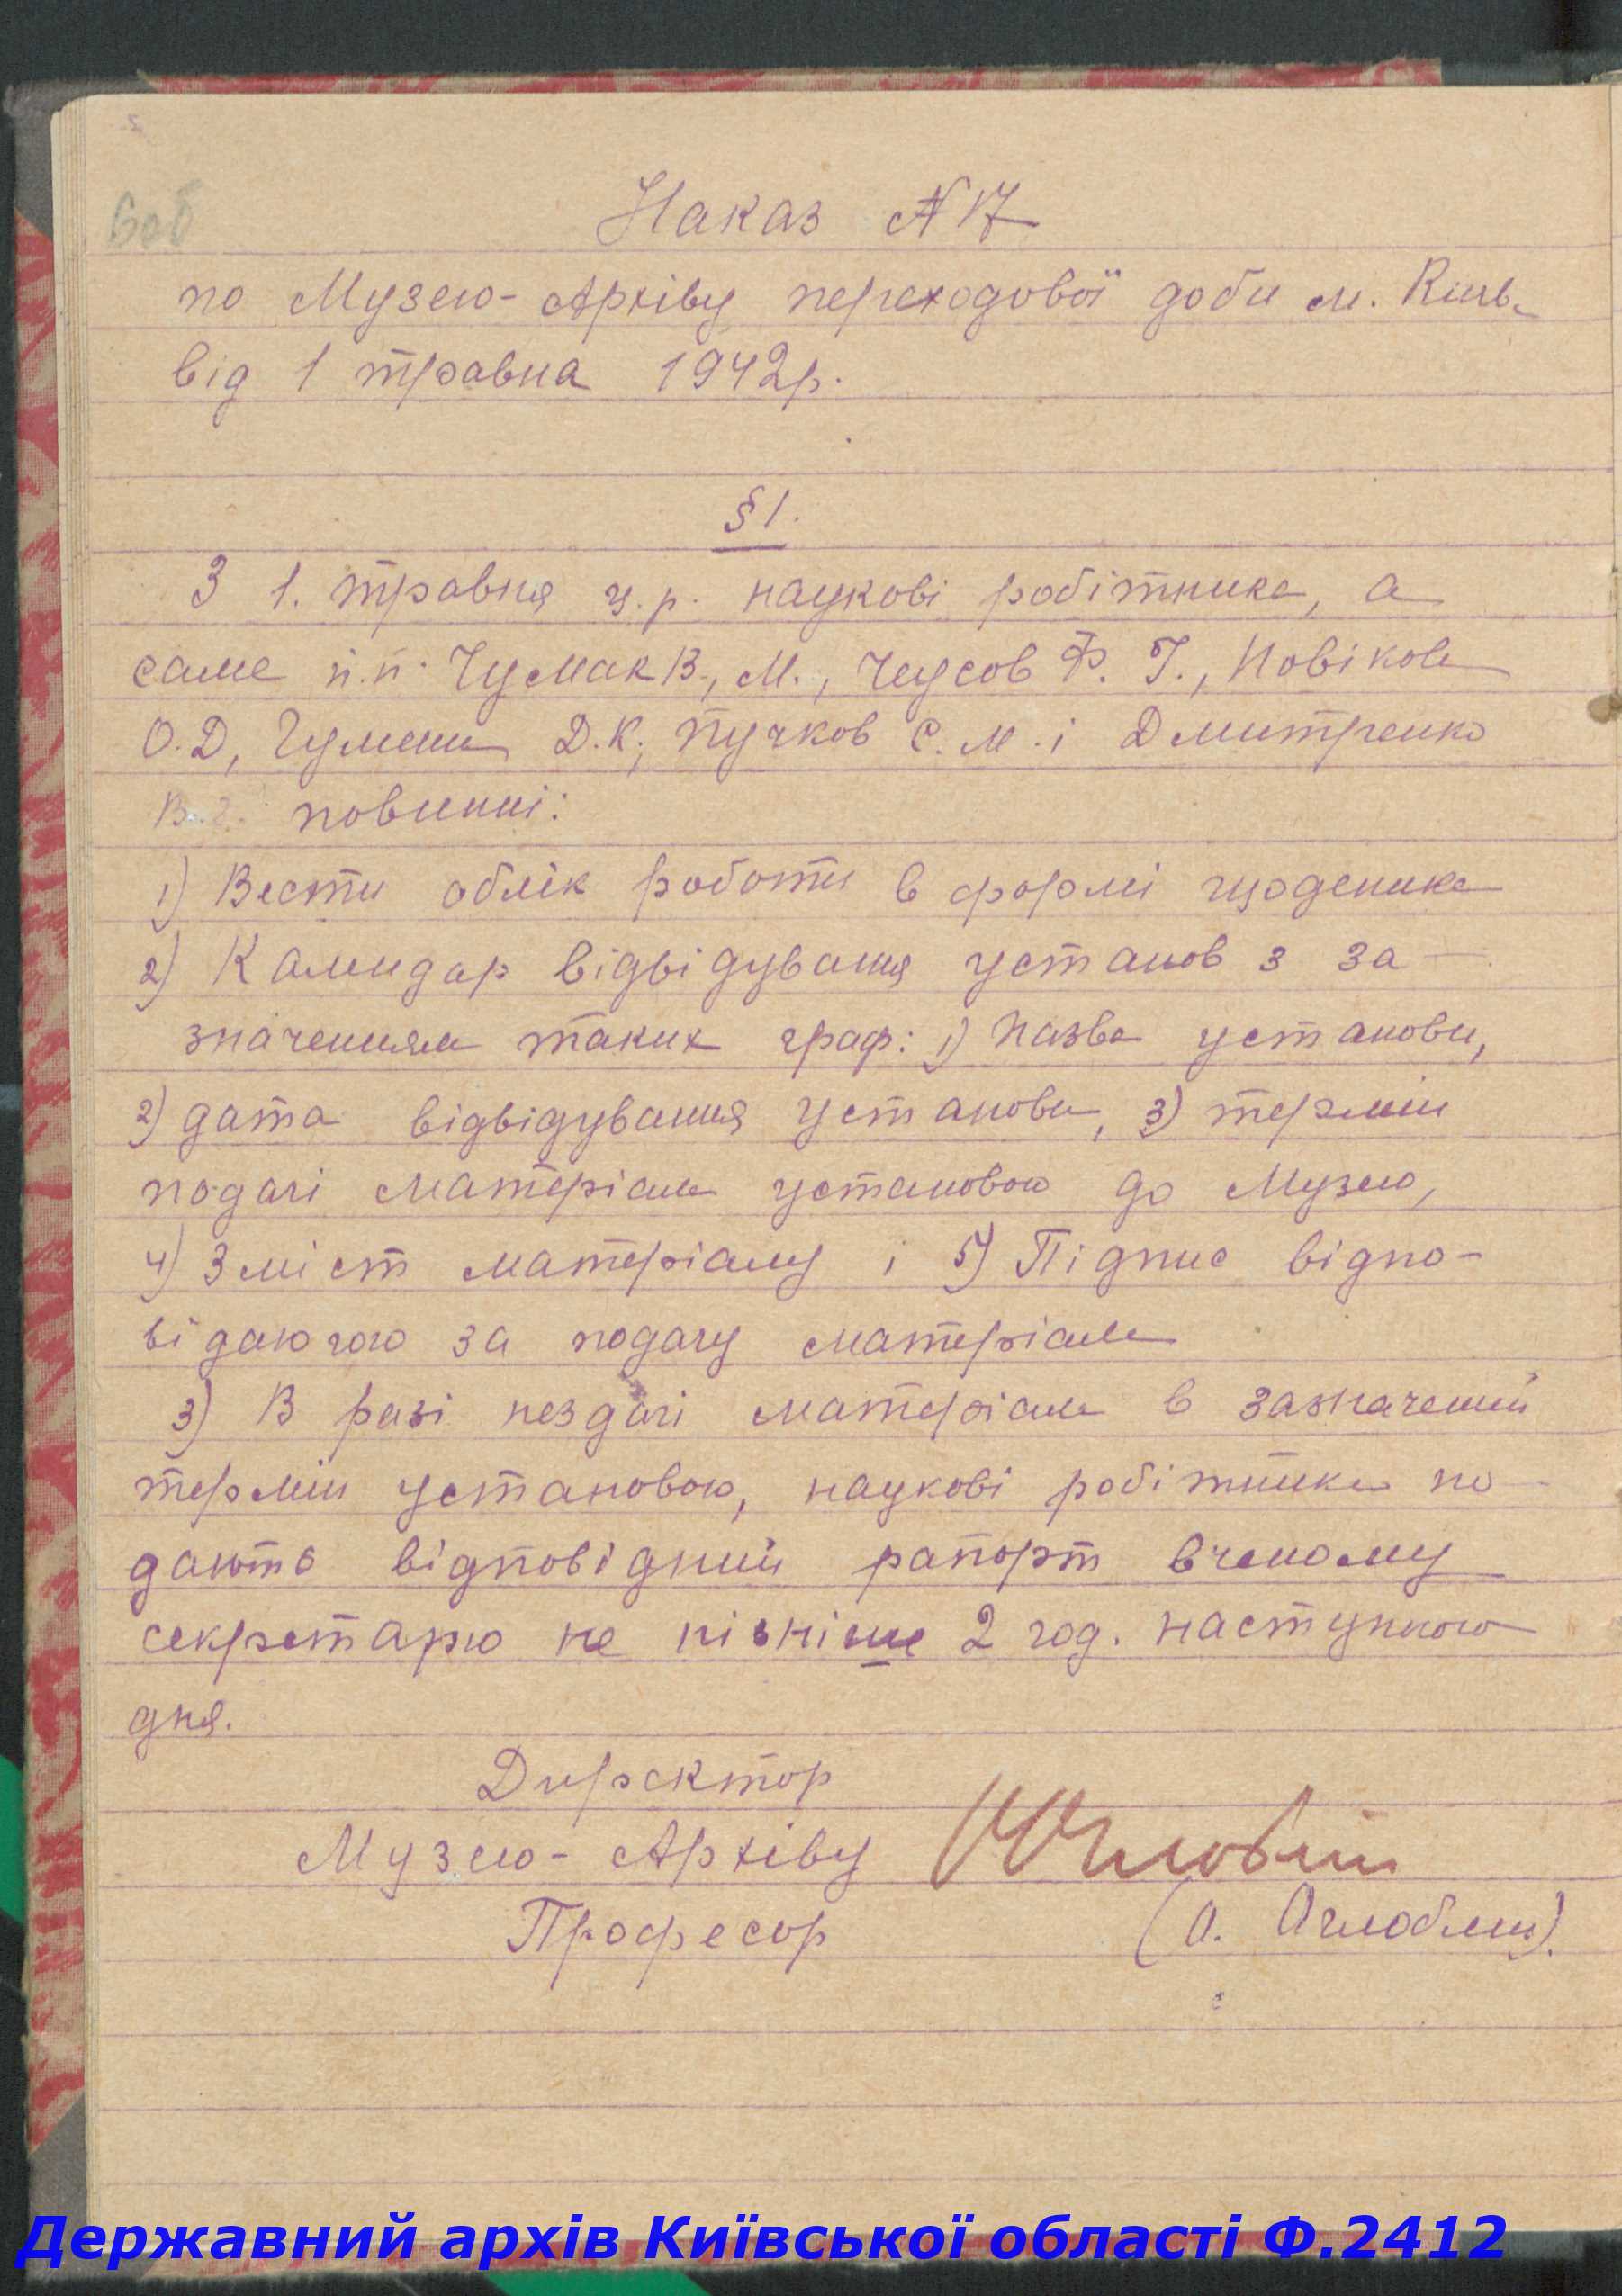 6об
Наказ № 17
по Музею-Архіву переходової доби м. Київ
від 1 травня 1942р.
§ 1.
З 1. травня ц.р. наукові робітники, а
саме п.п. Чумак В., М., Чеусов Ф. Г., Новіков
О.Д, Гумен Д.К, Пучков С. М. і Дмитренко
В.Г. повинні:
1) Вести облік роботи в формі щоденника
2) Календар відвідування установ з за-
значенням таких граф: 1) Назва установи,
2) дата відвідування установи, 3) термін
подачі матеріалів установою до Музею,
4) Зміст матеріалу і 5) Підпис відпо-
відаючого за подачу матеріалів
3) В разі нездачі матеріалів в зазначений
термін установою, наукові робітники по-
дають відповідний рапорт вченому
секретарю не пізніше 2 год. наступного
дня.
Директор
Музею-Архіву
Професор
(О. Оглоблин).
Державний архів Київської області Ф.2412